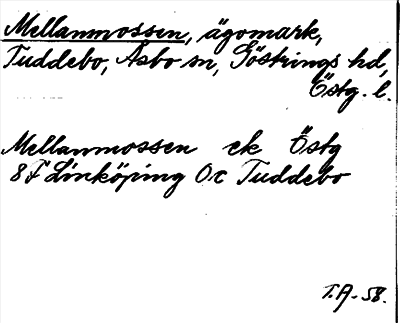 Mellanmossen, ägomark,
Tuddebo, Åsbo sn, Göstrings hd,
Östg. l.
Mellanmossen ek Östg
8F Linköping Oc Tuddebo
T.A-58.